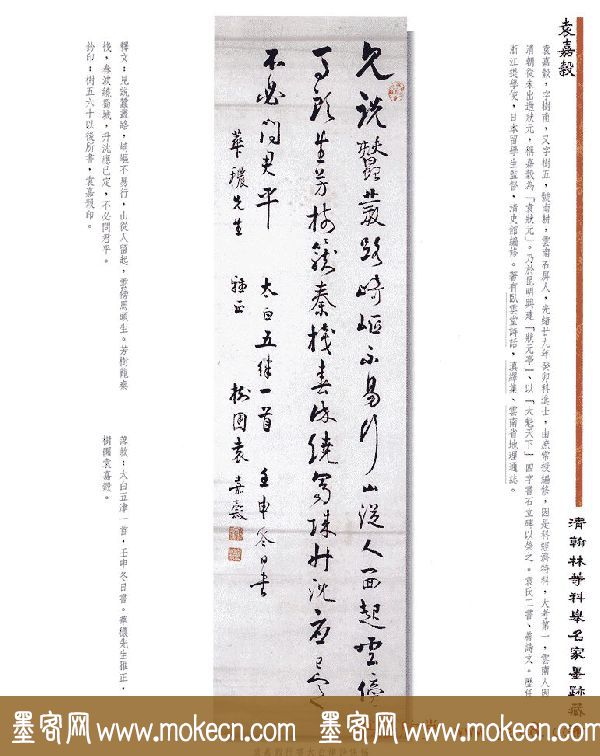 袁嘉穀
袁嘉穀,字樹甫,又字樹五,號南耕,雲南石屏人,光緒廿九年癸卯科進士,由庶常授編修,因是科經濟特科,大考第一,雲南人因
清朝從未出過狀元,稱嘉穀為「袁狀元」。乃於昆明興建「狀元亭」、以「大魁天下」四字書石立碑以榮之。袁氏工書、善詩文。歷任
浙江提學使,日本留學生監督,清史館編修。著有臥雲堂詩話,滇繹集、雲南省地理通誌。
清翰林等科舉名家墨跡藏
見說蠶叢路崎嶇不易行山從人面起雲傍
馬頭生芳樹籠秦棧春流繞蜀城升沈應已定
不必問君平 太白五律一首 壬申冬日書
華穠先生 雅正 樹圃袁嘉穀
釋文:見說蠶叢路,崎嶇不易行,山從人面起,雲傍馬頭生。芳樹籠秦
棧,春波繞蜀城,升沈應已定,不必問君平。
鈐印:樹五六十以後所書,袁嘉穀印。
落款:太白五律一首,壬申冬日書。華穠先生雅正,
樹圃袁嘉穀。
墨客网 www.mokecn.com 墨客网 www.mokecn.com